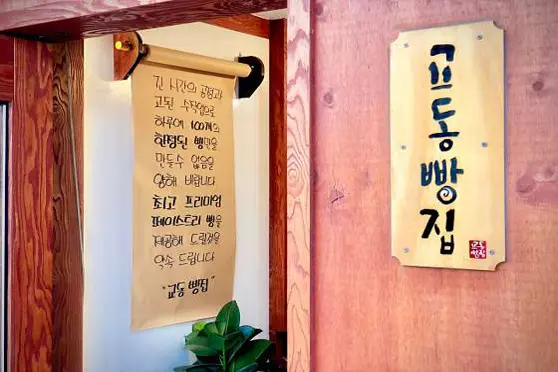 긴 시간의 공정과
고된 수작업으로
하루에 100개의
한정된 빵만을
만들수 없음을
양해 바랍니다
최고 프리미엄
페이스트리 빵을
제공해 드릴것을
약속 드립니다
"교동 빵집"
교
동
빵
집
교동
빵집